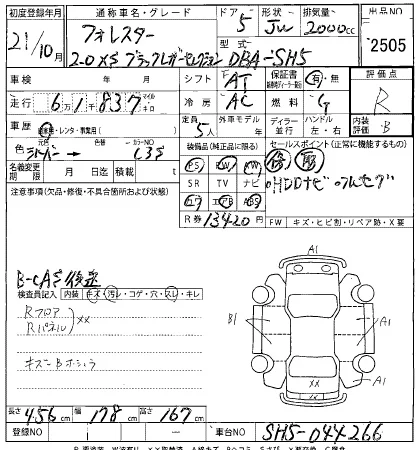 初度登録年月 通称車名・グレード ドア 形状 排気量 出品NO
21/10月 フォレスター 5 JW 2000cc 2505
2.0XS ブラックレザーセレクション 型式 DBA-SH5
車検 年 月 シフト AT 保証書 有・無 評価点
走行 6 1 8 3 7 マイル キロ 冷房 AC 燃料 G R
車歴 自家用・レンタ・事業用( ) 定員 5人 外車モデル 年 ディーラー 並行 ハンドル 左・右 内装評価 B
色 シルバー → カラーNO C3S 装備品(純正品に限る) セールスポイント(正常に機能するもの)
名義変更期限 月 日迄 積載量 t PS PW AW 修 取
注意事項(欠品・修復・不具合箇所および状態) SR TV ナビ HDDナビ フルセグ
エアB ABS
R券 13420円 FW キズ・ヒビ割・リペア跡・X要
B-CAS 後送
検査員記入 内装 キズ・汚レ・コゲ・穴・スレ・キレ
Rフロア XX
Rパネル
A1
B1 A1
XX
A1 A1
長さ 456cm 幅 178cm 高さ 167cm
登録NO 車台NO SH5-044266